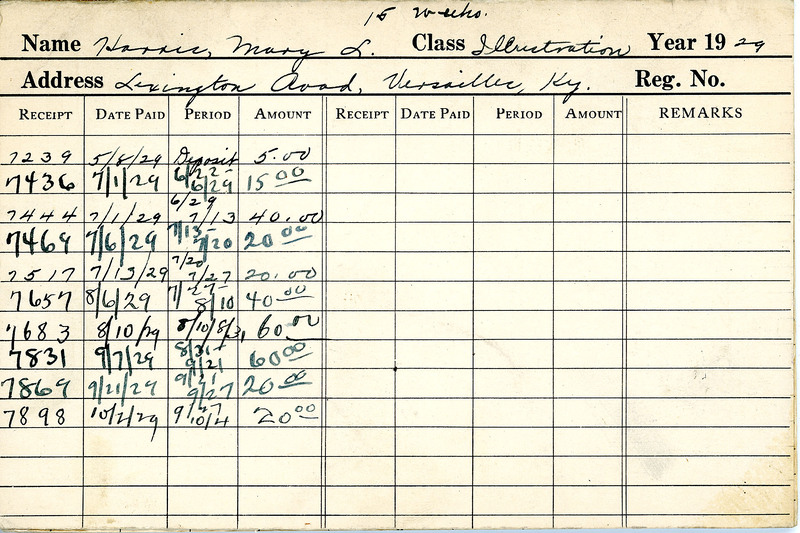 15 weeks.
Name Harris, Mary L. Class Illustration Year 19 29
Address Lexington Road, Versailles, Ky. Reg. No.
RECEIPT DATE PAID PERIOD AMOUNT RECEIPT DATE PAID PERIOD AMOUNT REMARKS
7239 5/8/29 Deposit 5.00
7436 7/1/29 6/22- 6/29 15 00
7444 7/1/29 6/29 7/13 40.00
7469 7/6/29 7/13- 7/20 20 00
7517 7/13/29 7/20 7/27 20.00
7657 8/6/29 7/27- 8/10 40 00
7683 8/10/29 8/10/8/31 60.00
7831 9/7/29 8/31- 9/21 60 00
7869 9/21/29 9/21 9/27 20 00
7898 10/2/29 9/27 10/4 20 00